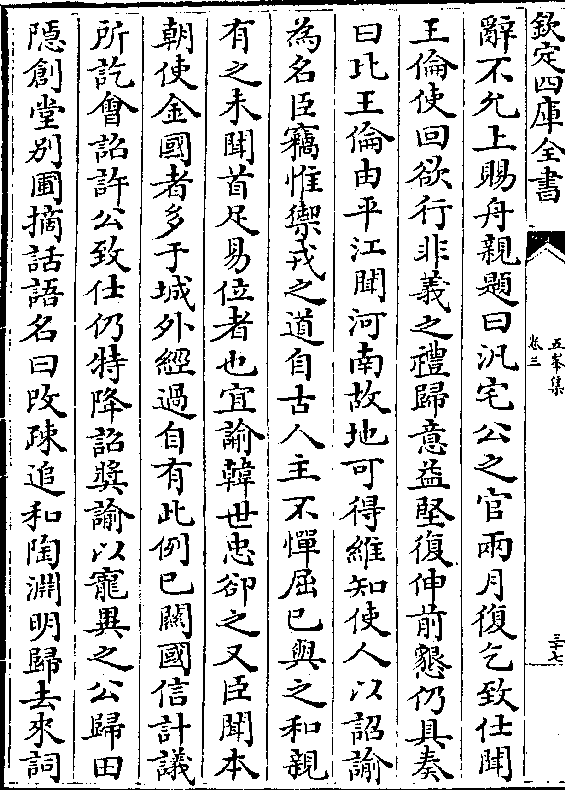 欽定四庫全書
五峯集
卷三
三十七
辭不允上賜舟親題曰汎宅公之官兩月復乞致仕聞
王倫使回欲行非義之禮歸意益堅復伸前懇仍具奏
曰比王倫由平江聞河南故地可得維知使人以詔諭
為名臣竊惟禦戎之道自古人主不憚屈已與之和親
有之未聞首足易位者也宜諭韓世忠卻之又臣聞本
朝使金國者多于城外經過自有此例已關國信計議
所訖會詔許公致仕仍特降詔奬諭以寵異之公歸田
隱創堂别圃摘話語名曰攺疎追和陶淵明歸去來詞